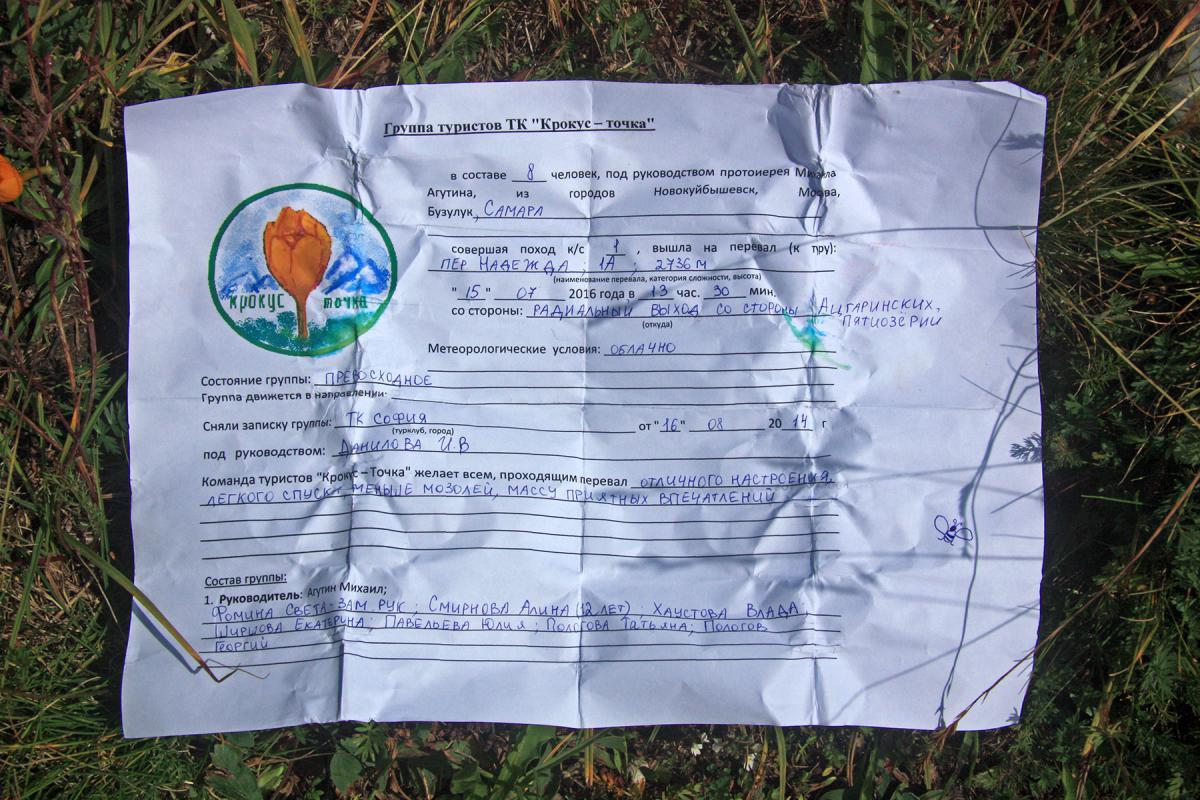 Группа туристов ТК "Крокус – точка"
в составе 8 человек, под руководством протоиерея Михаила
Агутина, из городов Новокуйбышевск, Москва,
Бузулук, САМАРА
крокус точка
совершая поход к/с 1, вышла на перевал (к туру):
ПЕР НАДЕЖДА ; 1А ; 2736 м
(наименование перевала, категория сложности, высота)
"15" 07 2016 года в 13 час. 30 мин.
со стороны: РАДИАЛЬНЫЙ ВЫХОД СО СТОРОНЫ АЦГАРИНСКИХ,
ПЯТИОЗЁРИИ
(откуда)
Метеорологические условия: ОБЛАЧНО
Состояние группы: ПРЕВОСХОДНОЕ
Группа движется в направлении:
Сняли записку группы: ТК СОФИЯ от "16" 08 2014 г
(турклуб, город)
под руководством: ДАНИЛОВА И.В
Команда туристов "Крокус – Точка" желает всем, проходящим перевал ОТЛИЧНОГО НАСТРОЕНИЯ,
ЛЕГКОГО СПУСКА, МЕНЬШЕ МОЗОЛЕЙ, МАССУ ПРИЯТНЫХ ВПЕЧАТЛЕНИЙ
Состав группы:
1. Руководитель: Агутин Михаил;
ФОМИНА СВЕТА-ЗАМ РУК ; СМИРНОВА АЛИНА (12 ЛЕТ) ; ХАУСТОВА ВЛАДА,
ШИРШОВА ЕКАТЕРИНА; ПАВЕЛЬЕВА ЮЛИЯ ; ПОЛОГОВА ТАТЬЯНА; ПОЛОГОВ
ГЕОРГИЙ